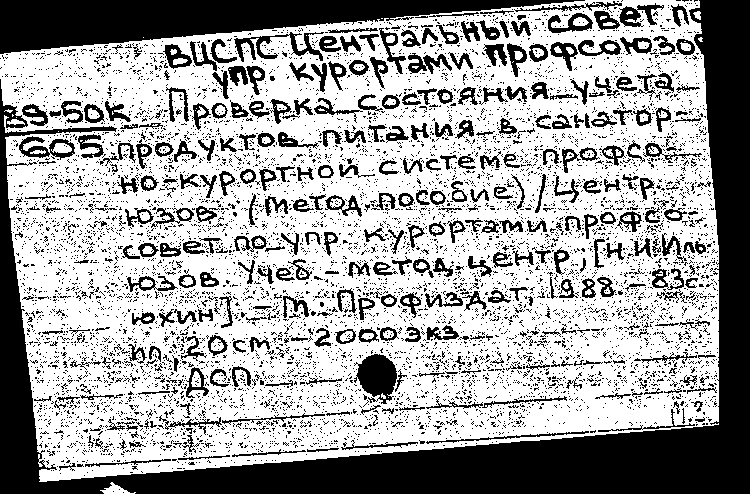 ВЦСПС Центральный совет по
упр. курортами профсоюзов
89-50К
605
Проверка состояния учета
продуктов питания в санатор-
но-курортной системе профсо-
юзов : (Метод. пособие) / Центр.
совет по упр. курортами профсо-
юзов. Учеб.-метод. центр ; [Н.И. Иль-
юхин]. - М. : Профиздат, 1988. - 83с.
ил, 20см - 2000 экз.
ДСП.